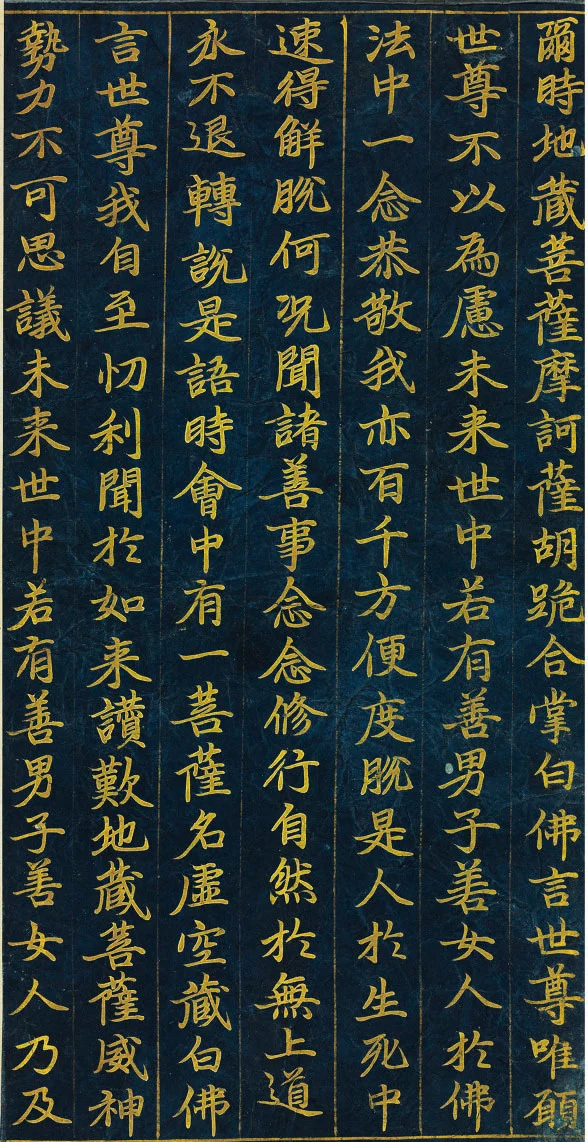 爾時地藏菩薩摩訶薩胡跪合掌白佛言世尊唯願
世尊不以為慮未來世中若有善男子善女人於佛
法中一念恭敬我亦百千方便度脫是人於生死中
速得解脫何況聞諸善事念念修行自然於無上道
永不退轉說是語時會中有一菩薩名虛空藏白佛
言世尊我自至忉利聞於如来讚歎地藏菩薩威神
勢力不可思議未来世中若有善男子善女人乃及